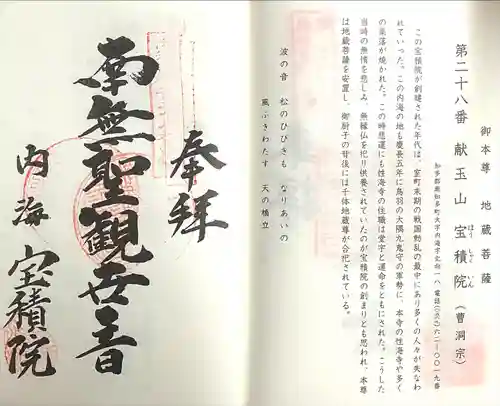 御本尊 地蔵菩薩
第二十八番 献玉山 宝積院(曹洞宗)
ほうしゃくいん
この宝積院が創建された年代は、室町末期の戦国動乱の最中にあり多くの人々が失なわ
れていった。この内海の地も慶長五年に鳥羽の大隅九鬼守の軍勢に、本寺の性海寺や多く
の集落が焼かれた。この時悲運にも性海寺の住職は堂宇と運命をともにされた。こうした
当時の無情を悲しみ、無縁仏を祀り供養されていたのが宝積院の創まりとも思われ、本尊
は地蔵菩薩を安置し、御厨子の背後には千体地蔵尊が合祀されている。
波の音 松のひびきも なりあいの
風ふきわたす 天の橋立
奉拝
南無聖観世音
内海 宝積院